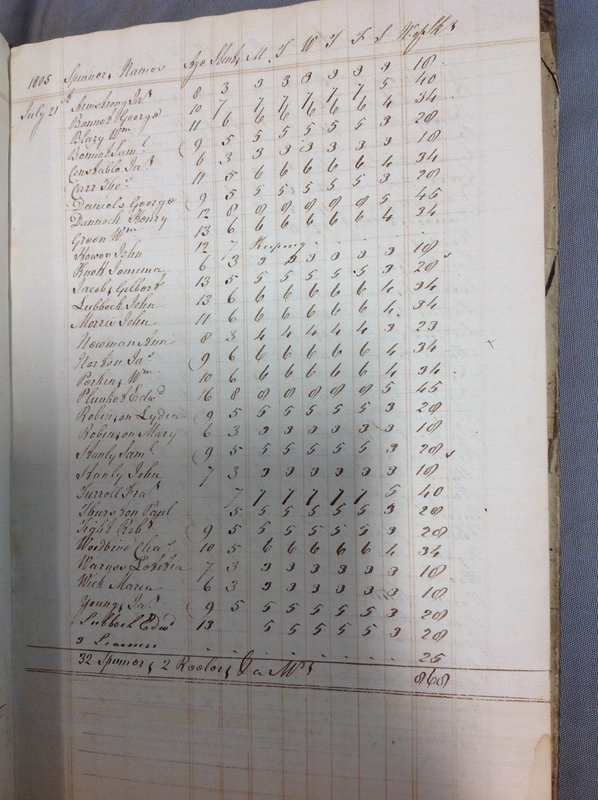 1805 Spinners Names Age Stint M. T W T F S Wefks
July 21st Armstrong Jas 8 3 3 3 3 3 3 3 18
Bennet George 10 7 7 7 7 7 7 5 40
Blazy Wm 11 6 6 6 6 6 6 4 34
Bennet Saml (9 5 5 5 5 5 5 3 28
Constable Jas 6 3 3 3 3 3 3 3 18
Carr Thos 11 5 6 6 6 6 6 4 34
Daniels George (9 5 5 5 5 5 5 3 28
Dannock Henry 12 8 8 8 8 8 8 5 45
Green Wm 13 6 6 6 6 6 6 4 34
Howes John 12 7
Knott Jemima 6 3 3 3 3 3 3 3 18
Jacobs Gilbert 13 5 5 5 5 5 5 3 28
Lubbock John 13 6 6 6 6 6 6 4 34
Morris John 11 6 6 6 6 6 6 4 34
Newman Ann 8 3 4 4 4 4 4 3 23
Norton Jas (9 6 6 6 6 6 6 4 34
Perkins Wm 10 6 6 6 6 6 6 4 34
Plunket Edwd 16 8 8 8 8 8 8 5 45
Robinson Lydia (9 5 5 5 5 5 5 3 28
Robinson Mary 6 3 3 3 3 3 3 3 18
Stanly Saml (9 5 5 5 5 5 5 3 28
Stanly John 7 3 3 3 3 3 3 3 18
Turrell Fras 7 7 7 7 7 7 5 40
Thurston Paul 5 5 5 5 5 5 3 28
Tight Robt (9 5 5 5 5 5 5 3 28
Woodbine Chas 10 5 6 6 6 6 6 4 34
Warnes Letitia 7 3 3 3 3 3 3 3 18
Wick Maria 6 3 3 3 3 3 3 3 18
Youngs Jas (9 5 5 5 5 5 5 3 28
Lubbock Edwd 13 5 5 5 5 5 3 28
3 Learners 25
32 Spinners 2 868